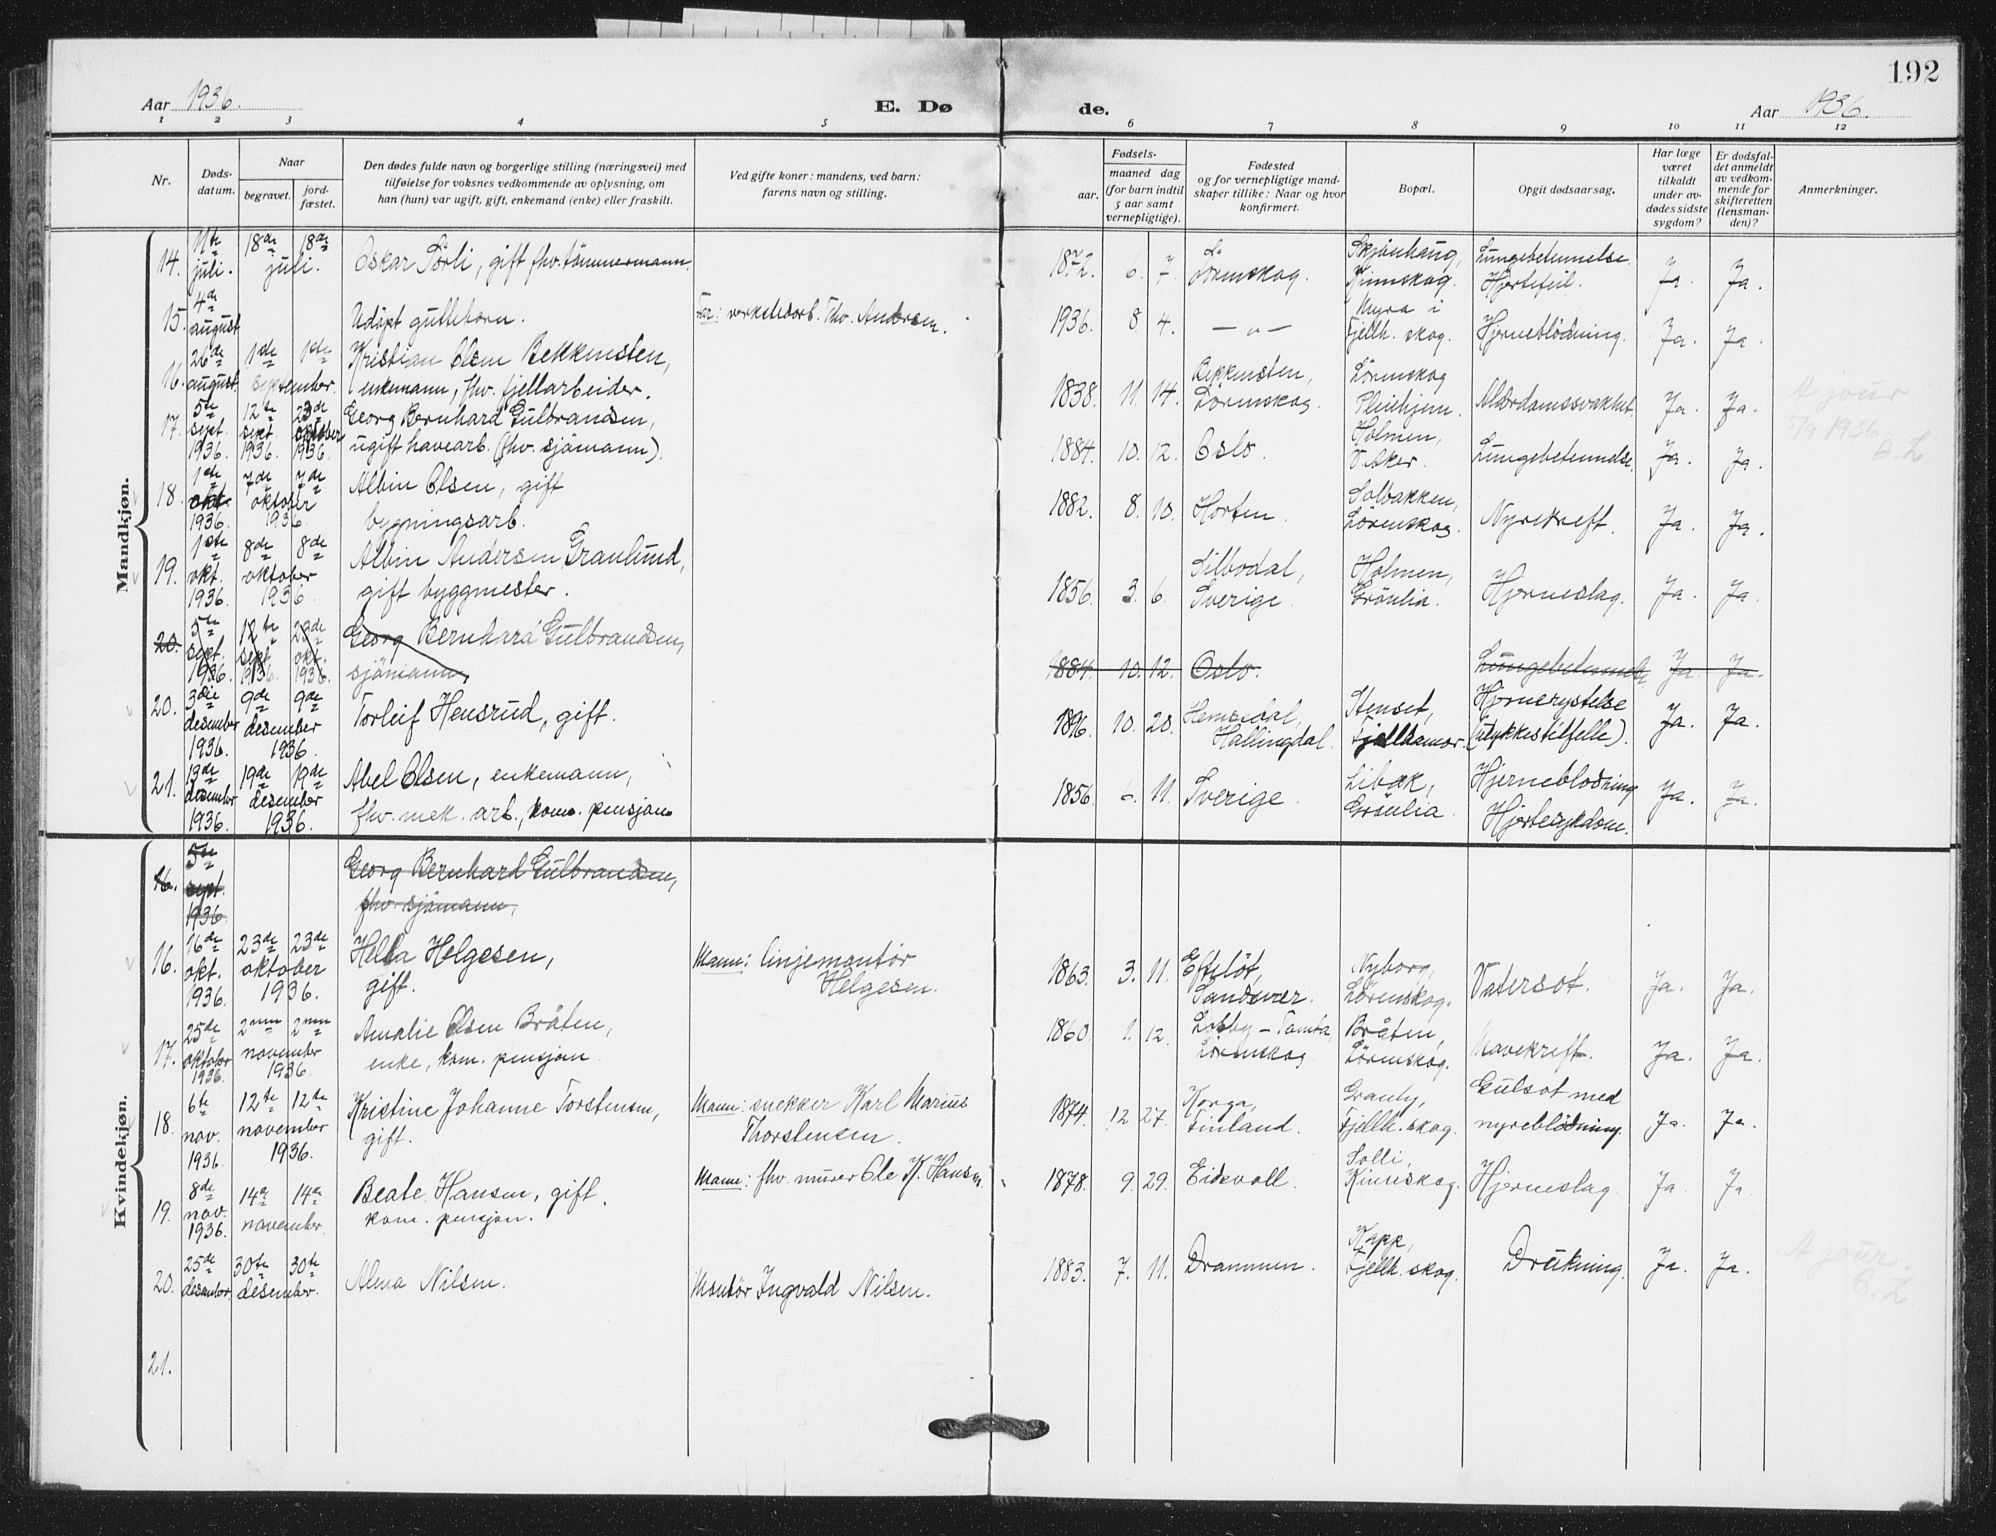 192
Aar 1936. E. Dø de. Aar 1936.
1 2 3 4 5 6 7 8 9 10 11 12
Nr.
Døds-
datum.
Naar
begravet.
jord-
fæstet.
Den dødes fulde navn og borgerlige stilling (næringsvei) med
tilføielse for voksnes vedkommende av oplysning, om
han (hun) var ugift, gift, enkemand (enke) eller fraskilt.
Ved gifte koner: mandens, ved barn:
farens navn og stilling.
Fødsels-
aar.
maaned dag
(for barn indtil
5 aar samt
vernepligtige).
Fødested
og for vernepligtige mand-
skaper tillike: Naar og hvor
konfirmert.
Bopæl.
Opgit dødsaarsag.
Har læge
været
tilkaldt
under av-
dødes sidste
sygdom?
Er dødsfal-
det anmeldt
av vedkom-
mende for
skifteretten
(lensman-
den)?
Anmerkninger.
Mandkjøn.
14. 11te juli. 18de 18de juli. Oskar Sørli, gift fhv. tömmermann. 1872. 6. 7. Lörenskog. Skjönhaug, Kinnskog. Lungebetennelse. Hjertefeil. Ja. Ja.
15. 4de august Udöpt guttebarn. Far: verkstedarb. Thv. Andersen. 1936. 8. 4. — " — Myra i Fjellh. skog. Hjerneblödning. Ja. Ja.
16. 26de august 1ste 1ste september. Kristian Olsen Bekkensten,
enkemann, fhv. fjellarbeider. 1838. 11. 14. Bekkensten, Lörenskog. Lörenskog Pleiehjem. Alderdomssvakhet Ja. Ja. A jour
5/9 1936
17. 5te sept. 1936. 12te sept. 1936. 23de oktober 1936. Georg Bernhard Gulbrandsen,
ugift havearb. (fhv. sjömann). 1884. 10. 12. Oslo. Holmen, V. Aker. Lungebetennelse. Ja. Ja.
18. 1ste okt. 1936. 7de 7de oktober 1936. Albin Olsen, gift
bygningsarb. 1882. 8. 10. Horten. Solbakken, Lörenskog. Nyrekreft. Ja. Ja.
19. 1ste okt. 1936. 8de 8de oktober 1936. Albin Andersen Granlund,
gift byggmester. 1856. 3. 6. Silbodal, Sverige. Holmen, Grönlia. Hjerneslag. Ja. Ja.
20. 5te sept. 1936. 12te sept. 1936. 23de okt. 1936. Georg Bernhard Gulbrandsen,
sjömann, 1884. 10. 12. Oslo. Lungebetennelse Ja. Ja.
20. 3die desember 1936. 9de 9de desember 1936. Torleif Hensrud, gift. 1896. 10 20. Hemsedal, Hallingdal. Stenset, Fjelldamar. Hjernerystelse (ulykkestilfelle). Ja. Ja.
21. 13de desember 1936. 19de 19de desember 1936. Abel Olsen, enkemann,
fhv. mek. arb., kom. pensjon. 1856. 6. 11. Sverige. Libak, Grönlia. Hjerneblödning Hjertesykdom. Ja. Ja.
Kvindekjøn.
16. 5te sept 1936. Georg Bernhard Gulbrandsen,
fhv. sjömann,
16. 16de okt. 1936. 23de 23de oktober 1936. Hella Helgesen,
gift. Mann: linjemontör Helgesen. 1863. 3. 11. Eftelöt, Sandsver. Nyborg, Lörenskog. Vatersot. Ja. Ja.
17. 25de oktober 1936. 2nen 2nen november 1936. Amalie Olsen Bråten,
enke, kom. pensjon. 1860. 1. 12. Losby - Tomta Lörenskog Bråten, Lörenskog. Mavekreft. Ja. Ja.
18. 6te nov. 1936. 12te 12te november 1936. Kristine Johanne Torstensen,
gift. Mann: snekker Karl Marius Thorstensen. 1874. 12 27. Korga, Finland. Granly, Fjellh. skog. Gulsot med nyreblödning. Ja. Ja.
19. 8de nov. 1936. 14de 14de november. Beate Hansen, gift.
kom. pensjon. Mann: fhv. murer Ole K. Hansen 1878. 9. 29. Eidsvoll. Solli, Kinnskog. Hjerneslag Ja Ja.
20. 25de desember. 30te 30te desember. Alma Nilsen. Montör Ingvald Nilsen. 1883. 7. 11. Drammen. Kapp, Fjellh. skog. Drukning. Ja. Ja. A jour.
21.